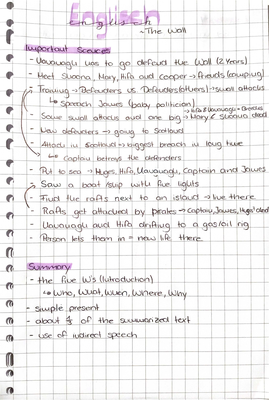 Englisch
English
~The Wall
Important Scences
- Kavanaugh has to go defend the Wall (2 Years)
- Meet Shoona, Mary, Hifa and Cooper → friends (camping)
- Training → Defenders vs. Defenders (others) → small attacks
↳ Speech James (baby politician)
- Some small attacks and one big → Mary & Shoona dead
- New defenders → going to Scotland
- Attack in Scotland → biggest breach in long time
↳ Captain betrays the defenders
- Put to sea → Hughs, Hifa, Kavanaugh, Captain and James
- Saw a boat/ship with five lights
- Find the rafts next to an island → live there
- Rafts get attacked by pirates → Captain, James, Hughs dead
- Kavanaugh and Hifa drifting to a gas/oil rig
- Person lets them in = new life there
Summary
- the five W's (Introduction)
↳ Who, What, When, Where, Why
- simple present
- about of the summarized text
- use of indirect speech